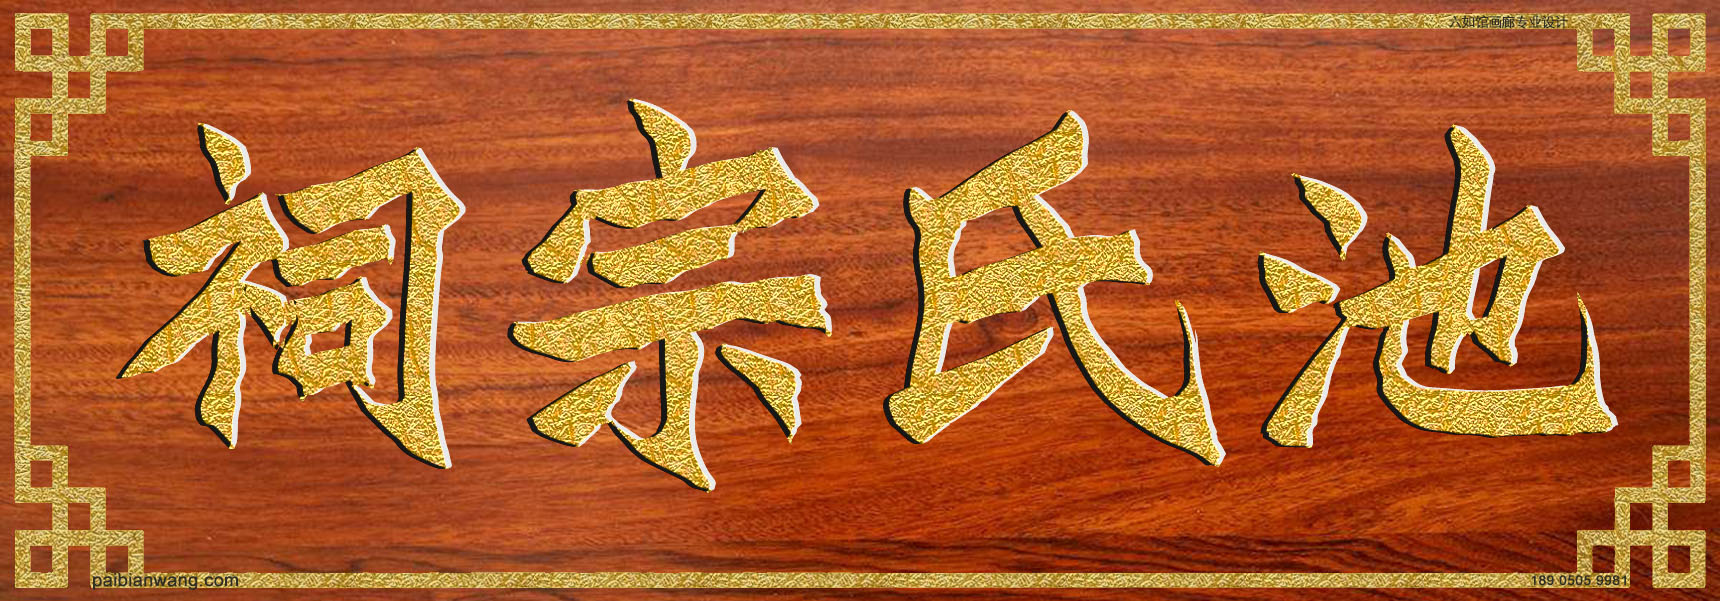 六如馆画廊专业设计
池氏宗祠
paibianwang.com
189 0505 9981